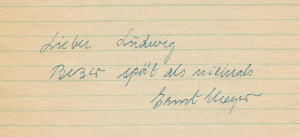 Lieber Ludwig
Besser spät als niemals
Ernst Mayr